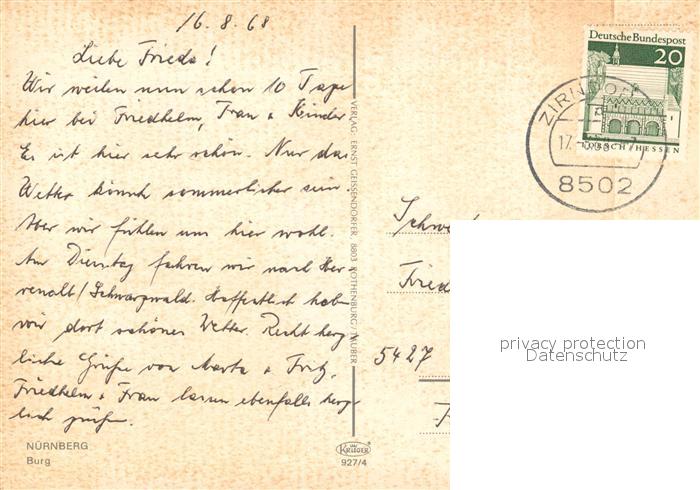 16.8.68
Liebe Frieda!
Wir weilen nun schon 10 Tage
hier bei Friedhelm, Frau + Kinder
Es ist hier sehr schön. Nur das
Wetter könnte sommerlicher sein.
Aber wir fühlen uns hier wohl.
Am Dienstag fahren wir nach Her
renalb/Schwarzwald. Hoffentlich haben
wir dort schönes Wetter. Recht herz
liche Grüße von Marta + Fritz,
Friedhelm + Frau lassen ebenfalls herz
lich grüßen.
NÜRNBERG
Burg
VERLAG: ERNST GEISSENDÖRFER, 8803 ROTHENBURG/TAUBER
KRÜGER
927/4
Deutsche Bundespost
20
LORSCH/HESSEN
ZIRNDORF
17.-8.68-7
8502
Schwe
Fried
5427
privacy protection
Datenschutz